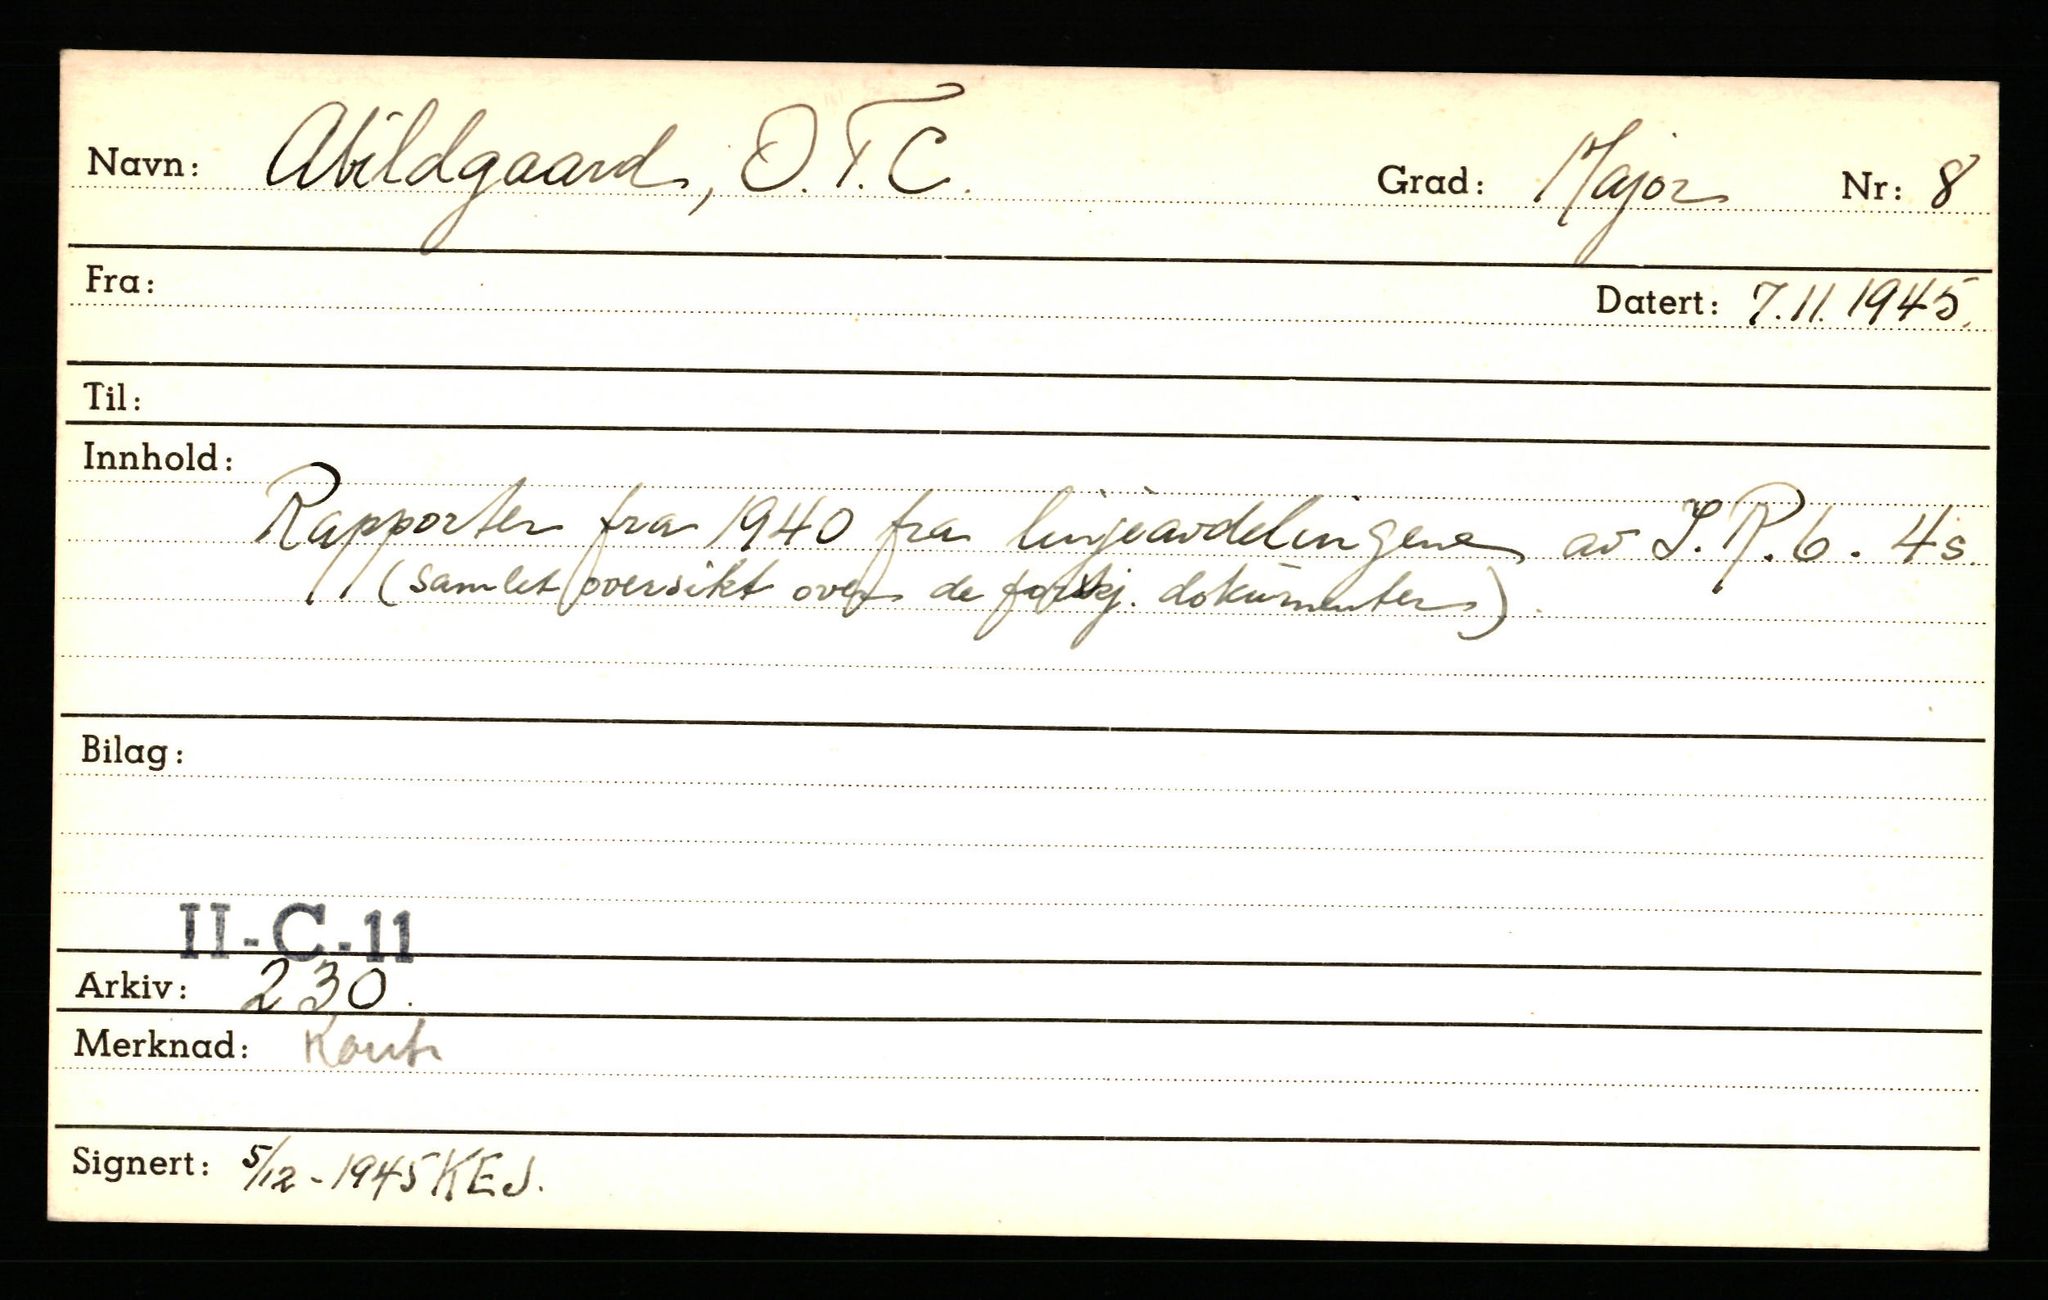 Navn: Abildgaard, O.T.C. Grad: Major Nr: 8
Fra: Datert: 7.11.1945.
Til:
Innhold:
Rapporter fra 1940 fra linjeavdelingene av I.R.6. 4s.
(samlet oversikt over de forskj. dokumenter).
Bilag:
II-C-11
Arkiv: 230.
Merknad:
Signert: 5/12-1945 KEJ.